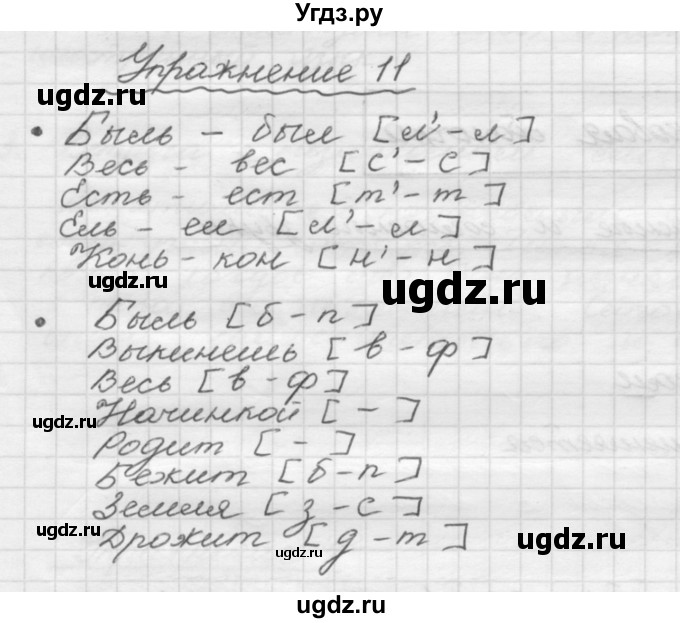 Угдз.ру
Упражнение 11
ugdz.ru
• Быль - был [л'-л]
Весь - вес [с'-с]
Есть - ест [т'-т]
Ель - ел [л'-л]
Конь - кон [н'-н]
ugdz.ru
ugdz.ru
• Быль [б-п]
Выкинешь [в-ф]
Весь [в-ф]
ugdz.ru
Начинкой [-]
Родит [-]
Бежит [б-п]
Земля [з-с]
ugdz.ru
Дрожит [д-т]
ugdz.ru
ugdz.ru
ugdz.ru